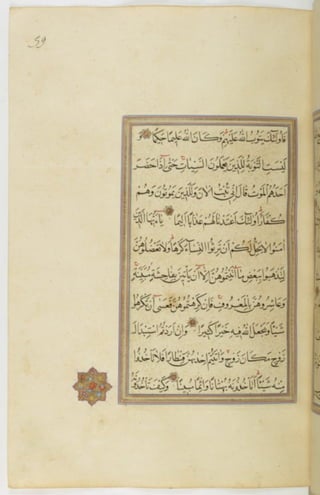 59
فاولئك يتوب الله عليهم وكان الله عليما حكيما و
ليست التوبة للذين يعملون السيئات حتى اذا حضر
احدهم الموت قال انى تبت الان ولا الذين يموتون وهم
كفار اولئك اعتدنا لهم عذابا اليما يا ايها الذين
امنوا لا يحل لكم ان ترثوا النساء كرها ولا تعضلوهن
لتذهبوا ببعض ما اتيتموهن الا ان ياتين بفاحشة مبينة
وعاشروهن بالمعروف فان كرهتموهن فعسى ان تكرهوا
شيئا ويجعل الله فيه خيرا كثيرا وان اردتم استبدال
زوج مكان زوج واتيتم احديهن قنطارا فلا تاخذوا
منه شيئا اتاخذونه بهتانا واثما مبينا وكيف تاخذونه